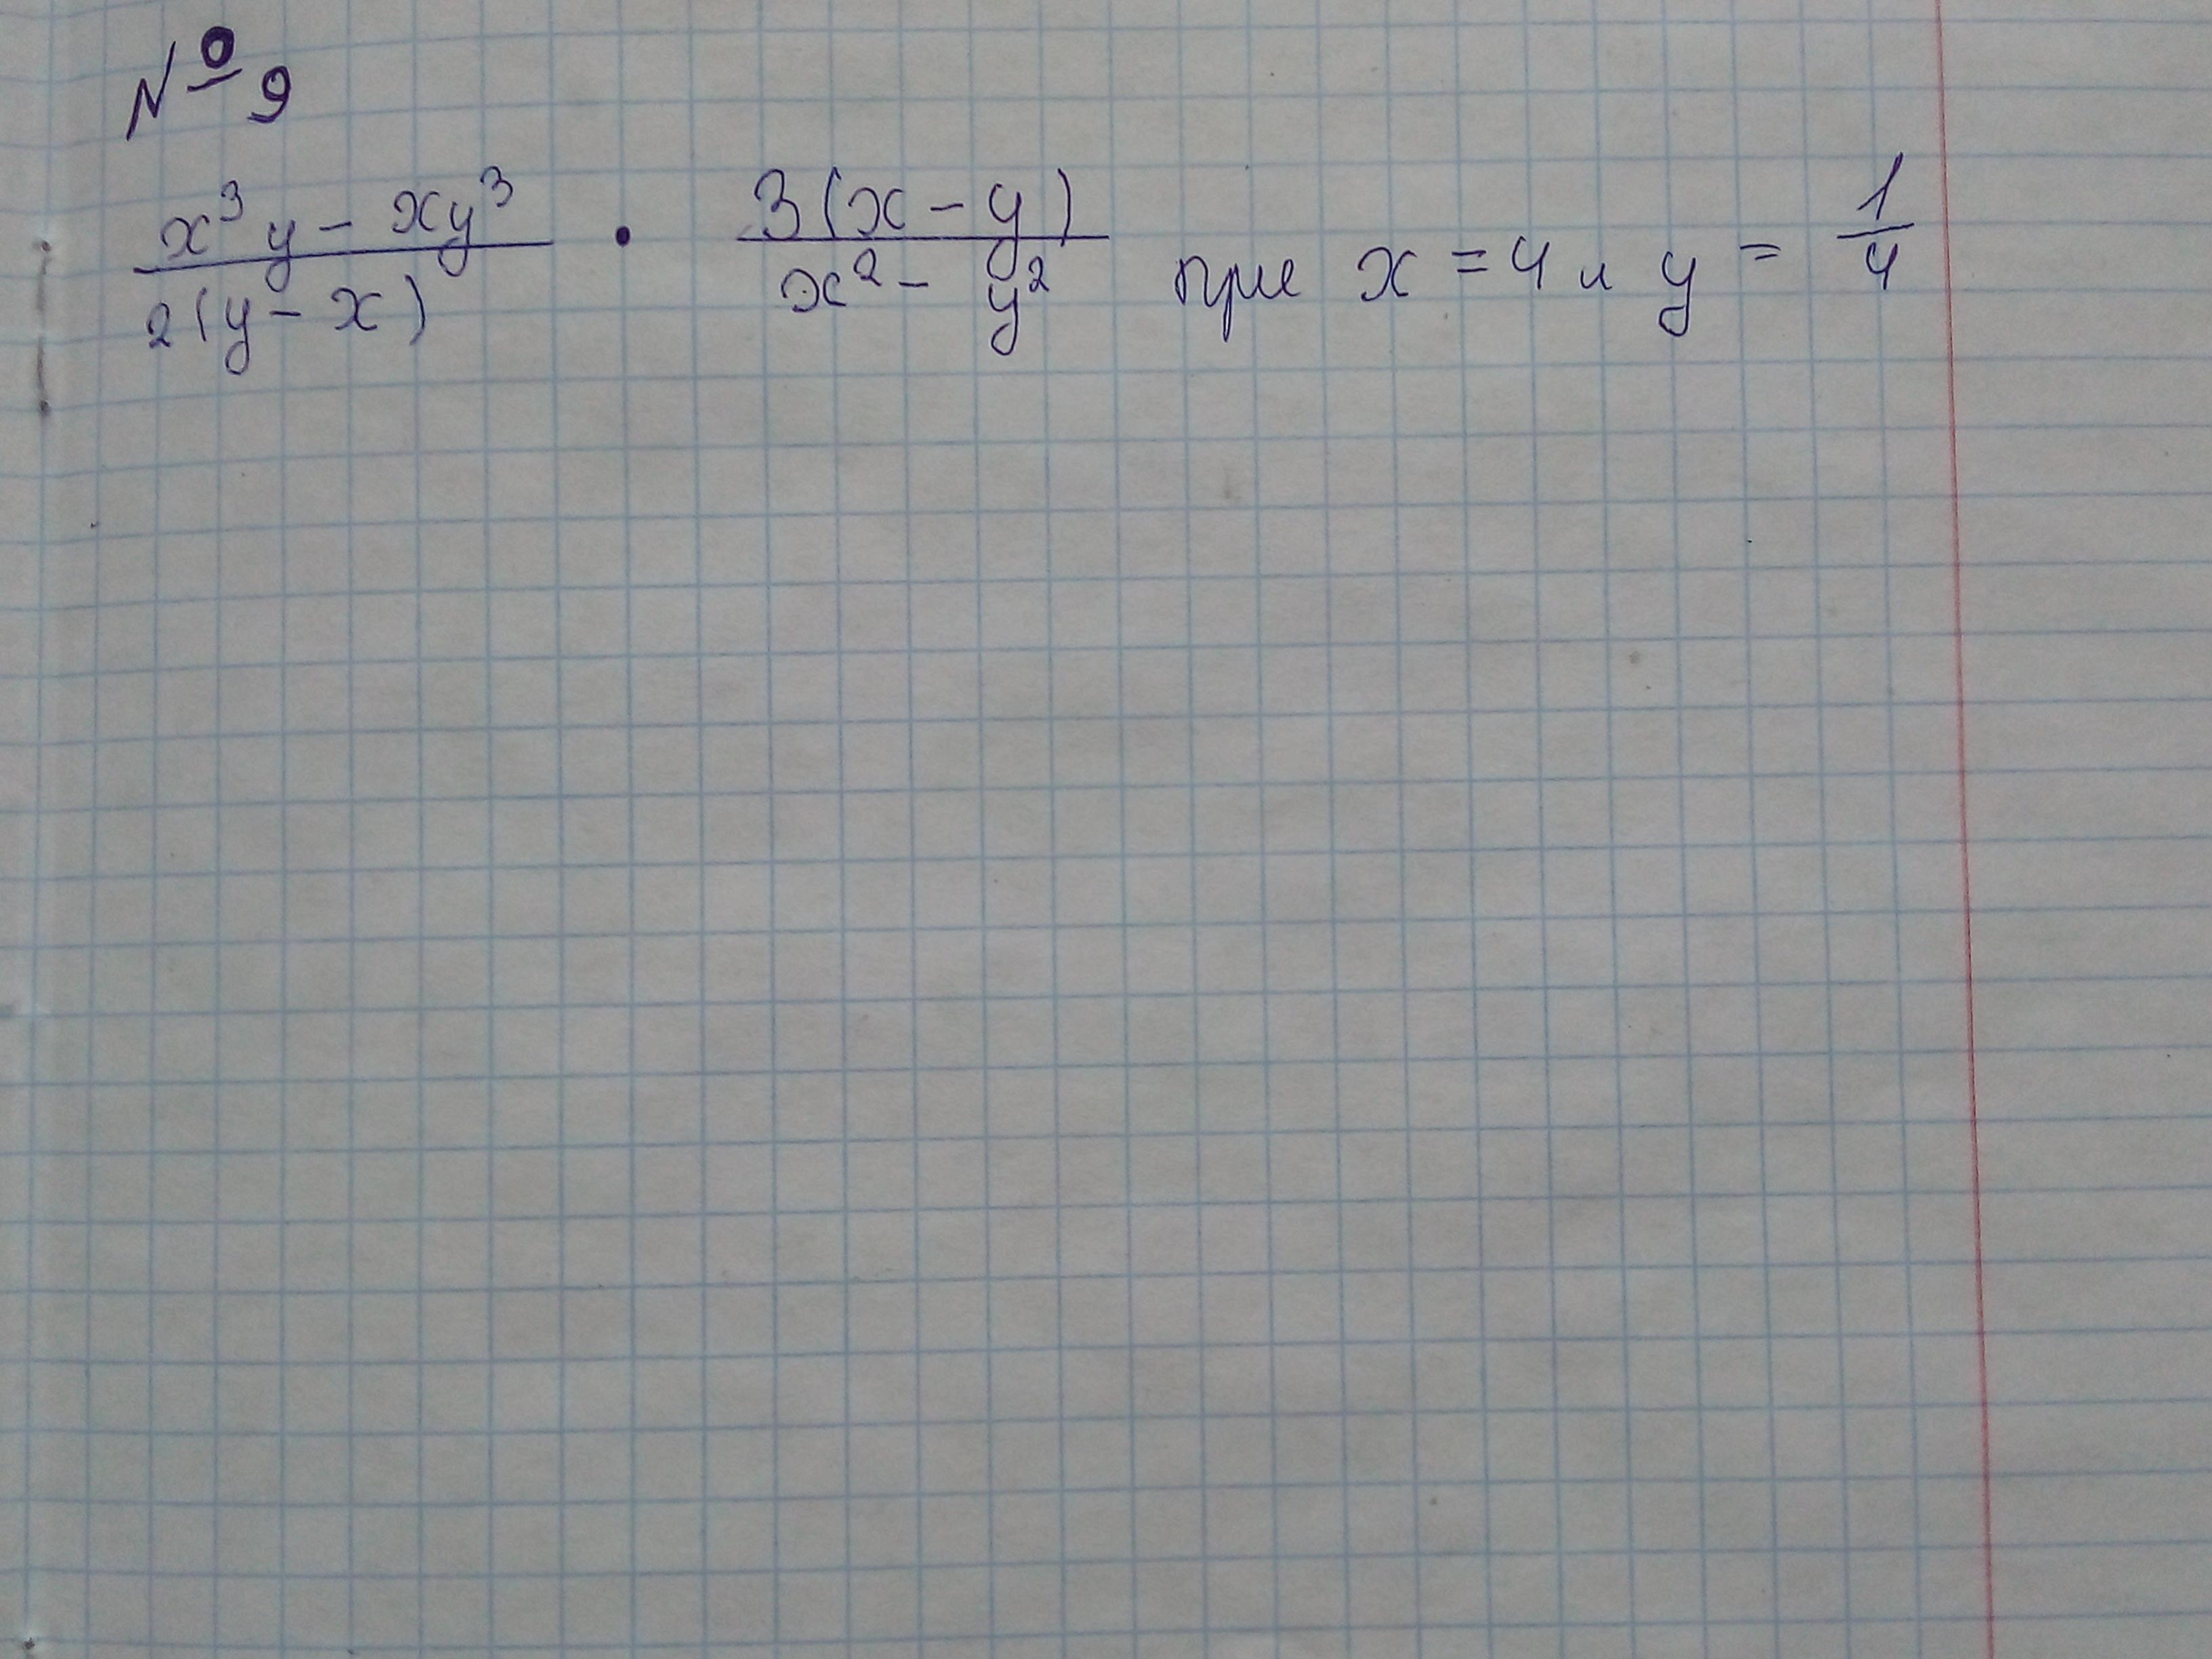 № 9
\frac{x^3y - xy^3}{2(y - x)} \cdot \frac{3(x - y)}{x^2 - y^2} при x = 4 и y = \frac{1}{4}